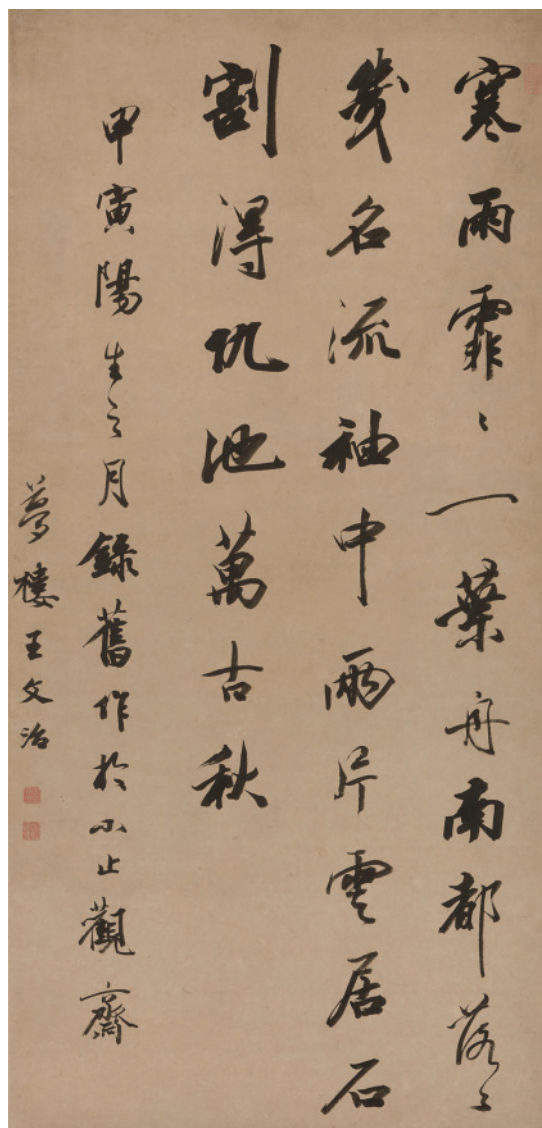 寒雨霏〻一葉舟南都落〻
幾名流袖中兩片雲居石
割得仇池萬古秋
甲寅陽生之月錄舊作於不止觀齋
夢樓王文治